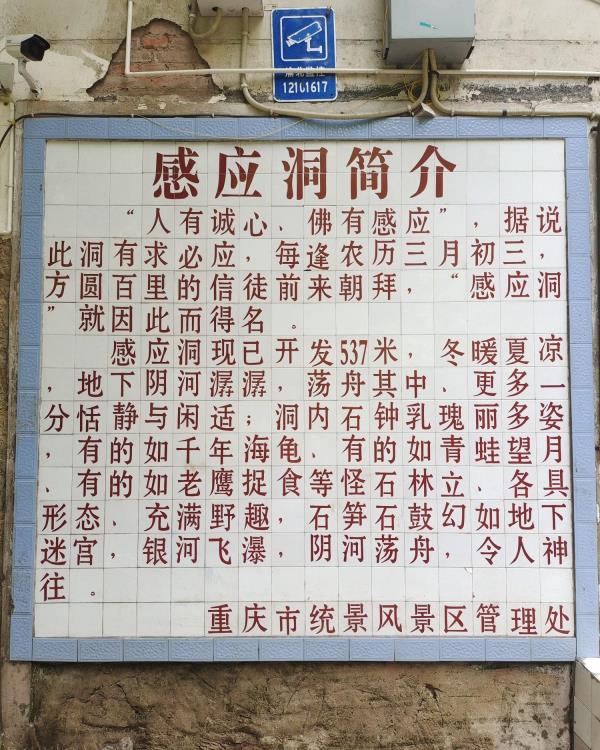 渝北监控
12101617
感应洞简介
“人有诚心、佛有感应”，据说
此洞有求必应，每逢农历三月初三，
方圆百里的信徒前来朝拜，“感应洞
”就因此而得名。
感应洞现已开发537米，冬暖夏凉
，地下阴河潺潺，荡舟其中、更多一
分恬静与闲适；洞内石钟乳瑰丽多姿
，有的如千年海龟、有的如青蛙望月
、有的如老鹰捉食等怪石林立、各具
形态、充满野趣，石笋石鼓幻如地下
迷宫，银河飞瀑，阴河荡舟，令人神
往。
重庆市统景风景区管理处